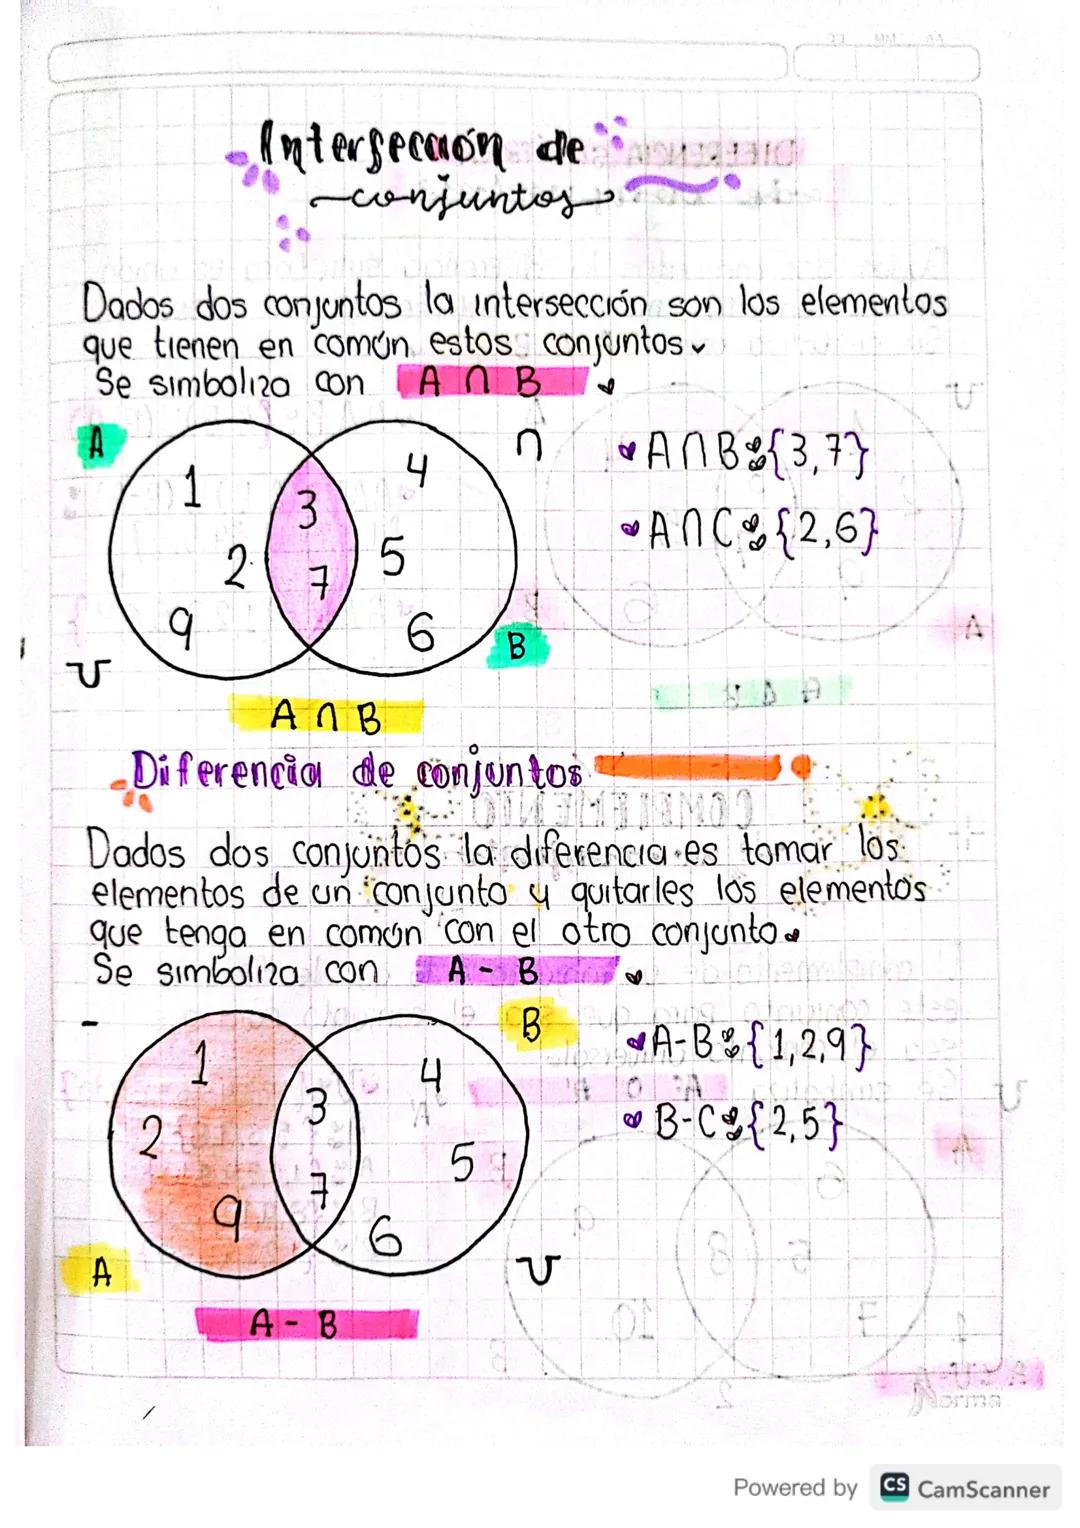 Intersección de
conjuntos
Dados dos conjuntos la intersección son los elementos
que tienen en común estos conjuntos
Se simboliza con A ∩ B
A
∩
1
3
4
2
7
5
9
6
B
U
A ∩ B
A∩B: {3,7}
A∩C: {2,6}
Diferencia de conjuntos
Dados dos conjuntos la diferencia es tomar los
elementos de un conjunto y quitarles los elementos
que tenga en común con el otro conjunto.
Se simboliza con A - B
-
B
1
3
4
2
7
5
9
6
A
U
A - B
A-B: {1,2,9}
B-C: {2,5}
Norma
Powered by CS CamScanner